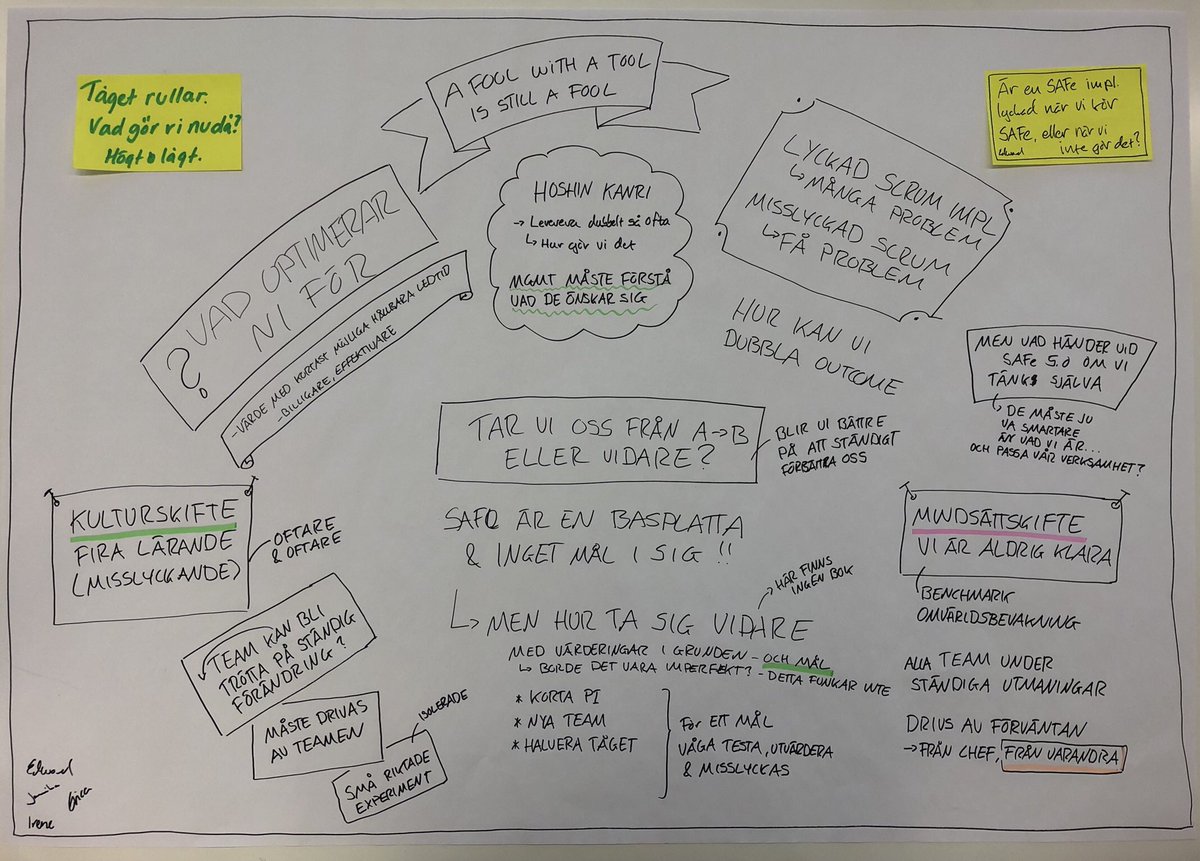 Tåget rullar.
Vad gör vi nudå?
Högt o lågt.
A FOOL WITH A TOOL
IS STILL A FOOL
Är en SAFe impl.
lyckad när vi kör
SAFe, eller när vi
inte gör det?
Edward
HOSHIN KANRI
→ Leverera dubbelt så ofta
↳ Hur gör vi det
MGMT MÅSTE FÖRSTÅ
VAD DE ÖNSKAR SIG
LYCKAD SCRUM IMPL
↳ MÅNGA PROBLEM
MISSLYCKAD SCRUM
↳ FÅ PROBLEM
? VAD OPTIMERAR
NI FÖR
-VÄRDE MED KORTAST MÖJLIGA HÅLLBARA LEDTID
-BILLIGARE, EFFEKTIVARE
HUR KAN VI
DUBBLA OUTCOME
MEN VAD HÄNDER VID
SAFe 5.0 OM VI
TÄNKS SJÄLVA
↳ DE MÅSTE JU
VA SMARTARE
ÄN VAD VI ÄR...
OCH PASSA VÅR VERKSAMHET?
TAR VI OSS FRÅN A→B
ELLER VIDARE?
BLIR VI BÄTTRE
PÅ ATT STÄNDIGT
FÖRBÄTTRA OSS
KULTURSKIFTE
FIRA LÄRANDE
(MISSLYCKANDE)
OFTARE
& OFTARE
SAFe ÄR EN BASPLATTA
& INGET MÅL I SIG !!
MINDSÄTTSKIFTE
VI ÄR ALDRIG KLARA
BENCHMARK
OMVÄRLDSBEVAKNING
HÄR FINNS
INGEN BOK
↳ MEN HUR TA SIG VIDARE
MED VÄRDERINGAR I GRUNDEN - OCH MÅL
↳ BORDE DET VARA IMPERFEKT? - DETTA FUNKAR INTE
* KORTA PI
* NYA TEAM
* HALVERA TÅGET
FÖR ETT MÅL
VÅGA TESTA, UTVÄRDERA
& MISSLYCKAS
ALLA TEAM UNDER
STÄNDIGA UTMANINGAR
DRIVS AV FÖRVÄNTAN
→ FRÅN CHEF, FRÅN VARANDRA
TEAM KAN BLI
TRÖTTA PÅ STÄNDIG
FÖRÄNDRING?
MÅSTE DRIVAS
AV TEAMEN
ISOLERADE
SMÅ RIKTADE
EXPERIMENT
Edward
Erica
Irene